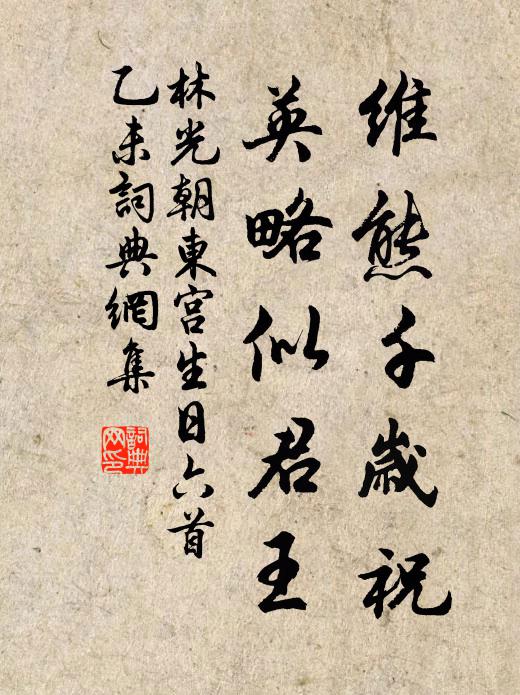 維熊千歲祝
英略似君王
林光朝東宮生日六首
乙未詞典網集
詞典網印